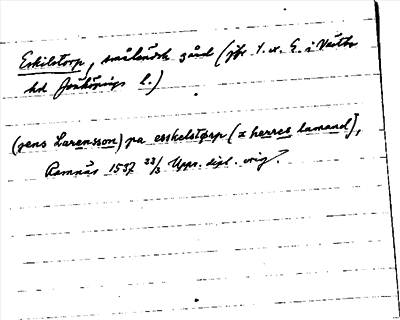 Eskilstorp, småländsk gård (jfr t. ex. E. i Västbo
hd Jönköpings l.)
(jens Larensson) pa esskelstørp (x herres lamand],
Ramnäs 1557 23/3 Upps. dipl. orig.